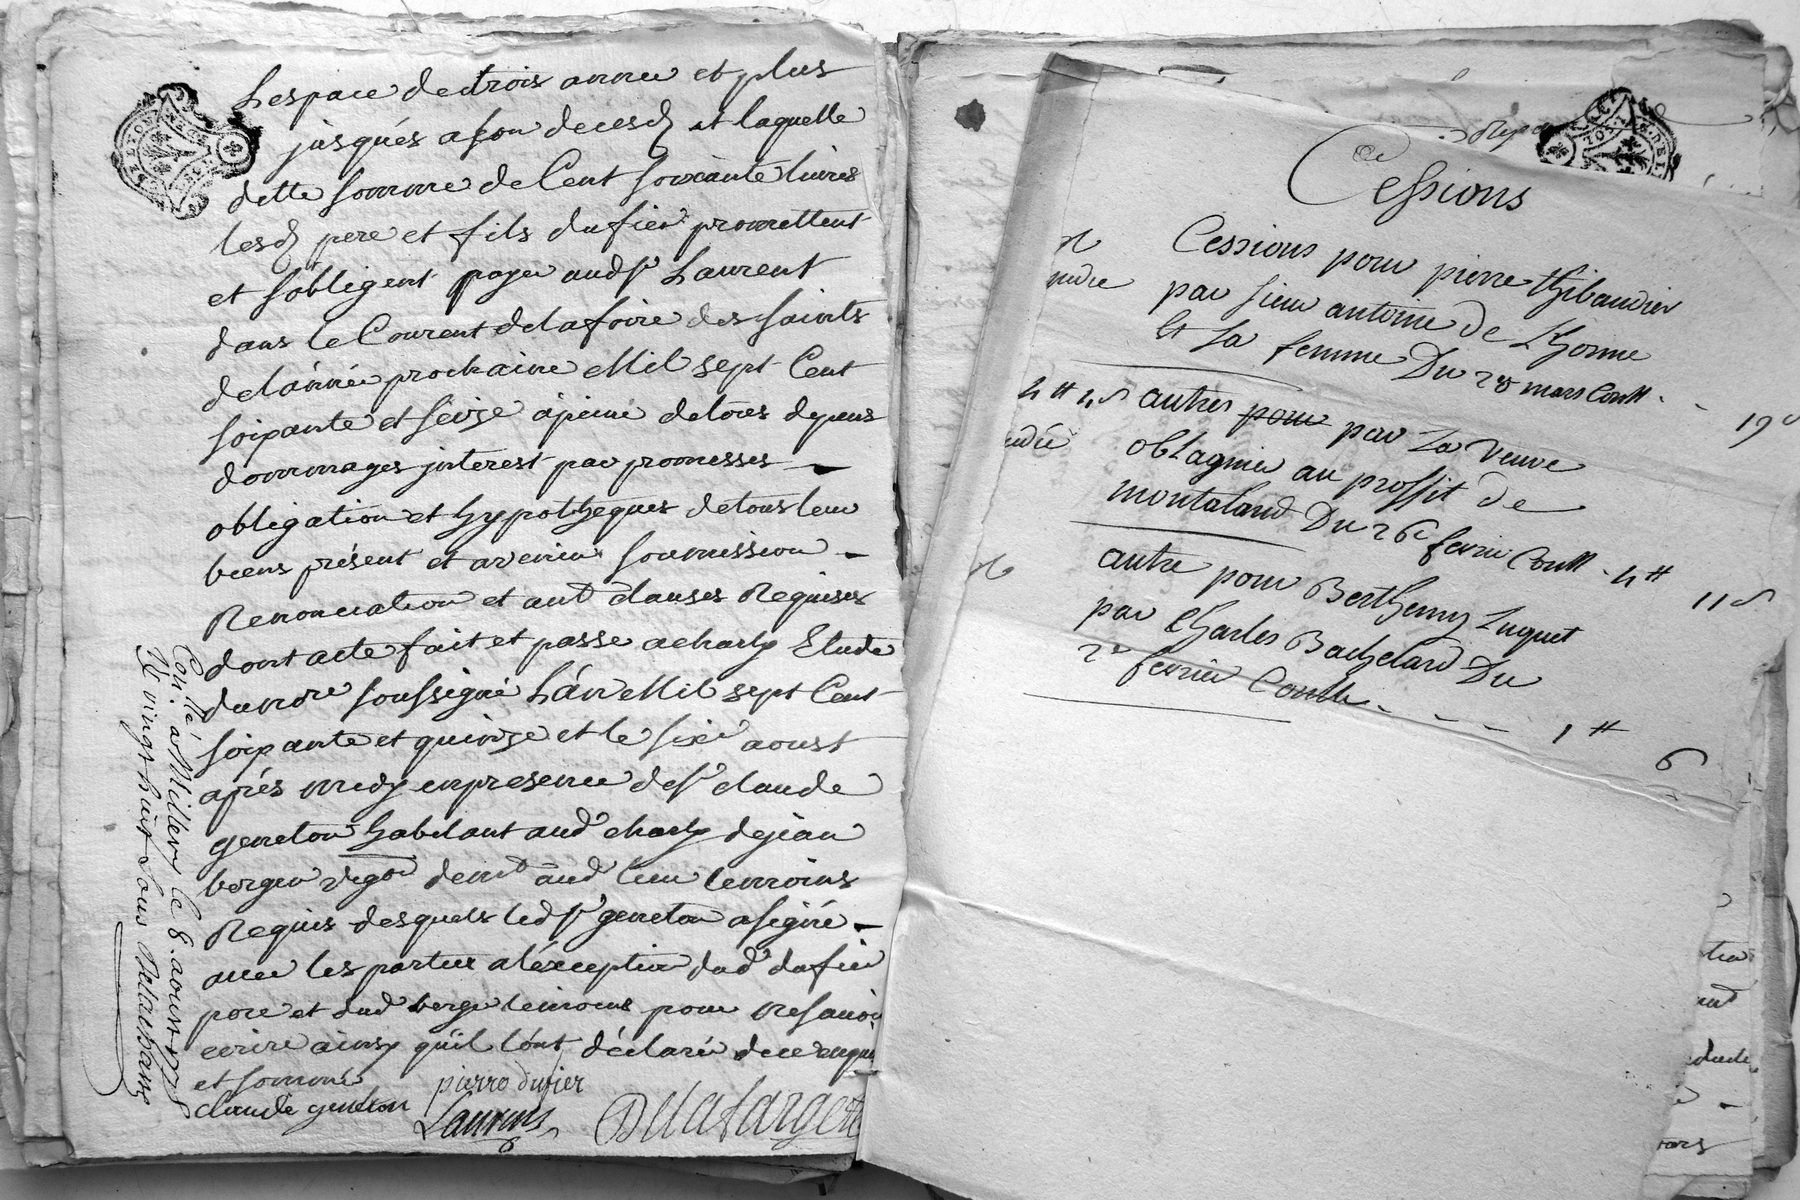 Lespace de trois anneé et plus
jusqués a son decesd et laquelle
dette somme de Cent soixante livres
lesd pere et fils dufier promettent
et sobligent payer aud sr Laurent
dans le Courent de la foire des saints
de lánnée prochaine Mil sept Cent
soixante et séize á peine de toús depens
dommages jnterest par promesses
obligation et hypotheques de tous leur
biens présent et avenir soumission
Renonciation et aut clauses Requises
dont acte fait et passe a charly Etude
du nore soussigné L'án Mil sept Cent
soixante et quinze et le sixe aoust
aprés midy en presence de sr claude
geneton habitant aud charly de jean
berger vigon demt aud lieu temoins
Requis desquels led sr geneton a signé
avec les parties a léxception dud dufier
pere et dud berger temoins pour ne savoir
ecrire ainsy quil lónt déclaré de ce enquis
et sommé
claude geneton
pierre dufier
Laurens
Delafargette
Con.llé a Millery le 8. aoust 1775
vingt huit sous
Cessions
Cessions pour pierre thibaudier
par sieur antoine de Lhorme
et Sa femme Du 28 mars Contt
190
autres pour par La veuve
oblagnier au proffit de
montaland Du 26e fevrier Contt 4tt
11 s
autre pour Berthemy Luquet
par Charles Bachelard Du
2e fevrier Contt 1tt
6